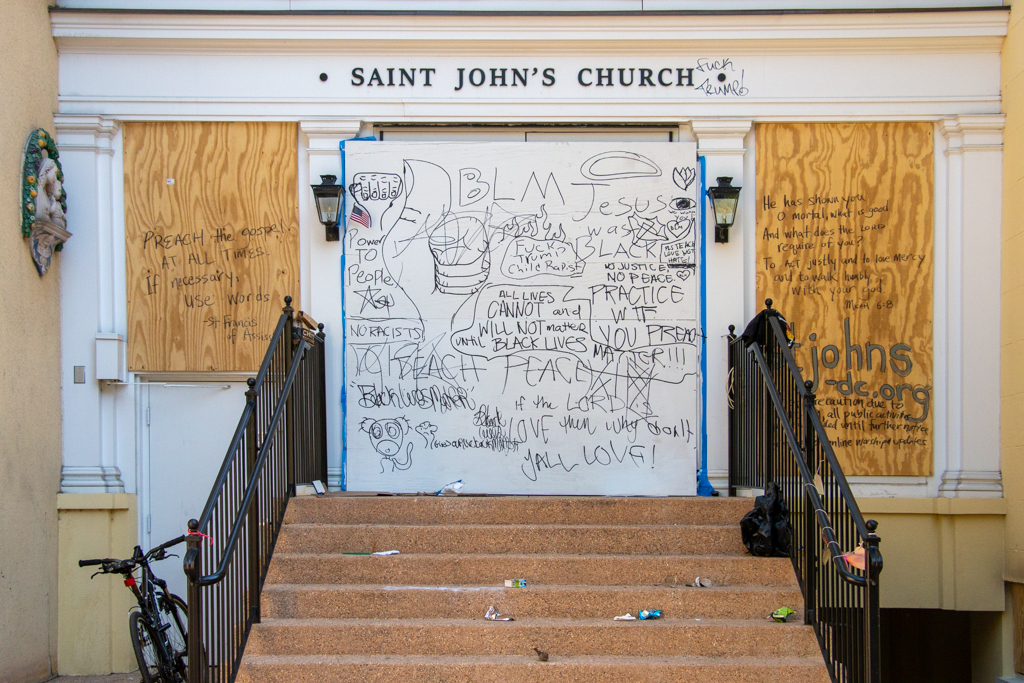 SAINT JOHN'S CHURCH
Fuck
Trump!
PREACH the Gospel
AT ALL TIMES.
if necessary,
use words
-St Francis
of Assisi
BLM
Jesus
was
BLACK
POWER
TO
People
Fuck
Trump
Chile Rapist
NO JUSTICE
NO PEACE
PRACTICE
WTF
YOU PREACH
ALL LIVES
CANNOT and
WILL NOT matter
until BLACK LIVES
MATTER!!!
NO RACISTS
PEACE
Black Lives Matter
if the LORD is
LOVE then why don't
Y'ALL LOVE!
He has shown you,
O mortal, what is good
And what does the LORD
require of you?
To act justly and to love mercy
and to walk humbly
with your god.
Micah 6:8
stjohns
-dc.org
precaution due to
, all public activities
until further notice
online worship updates